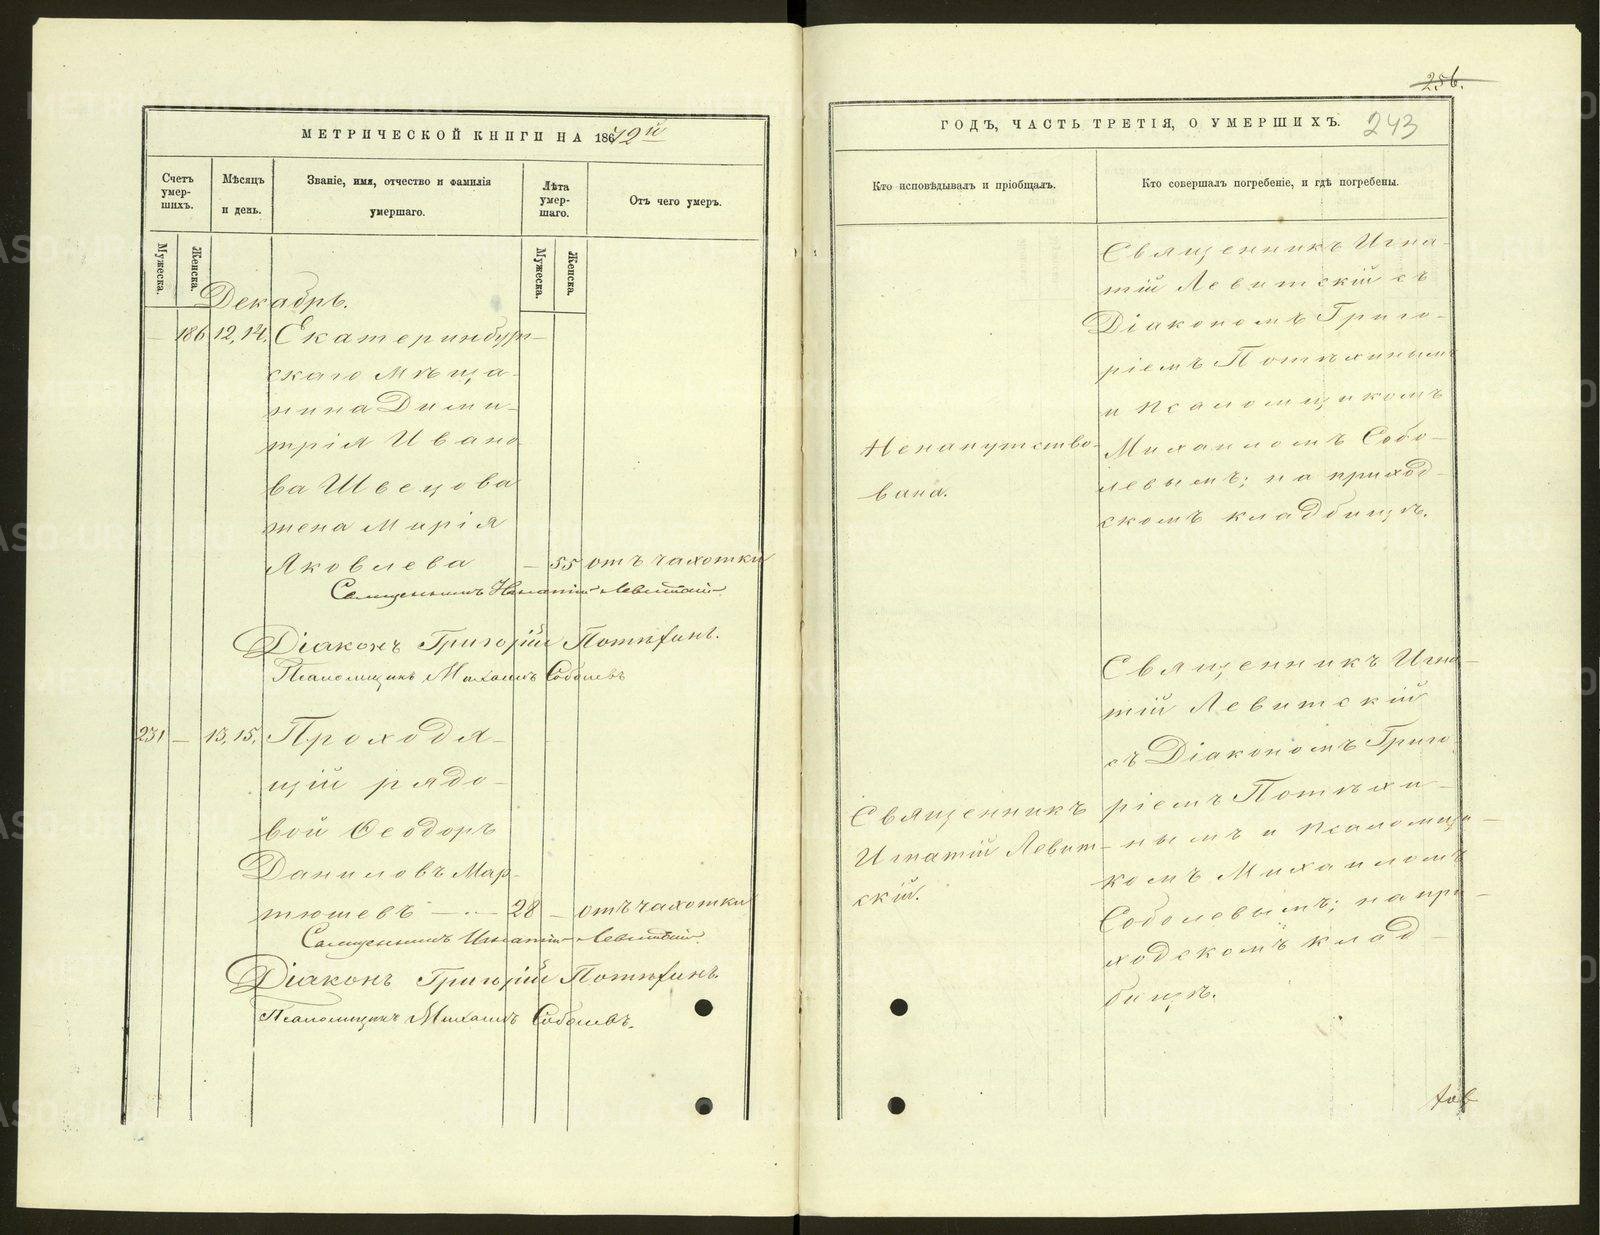 МЕТРИЧЕСКОЙ КНИГИ НА 1872й
Счетъ умер-шихъ.
Мѣсяцъ и день.
Званіе, имя, отчество и фамилія умершаго.
Лѣта умер-шаго.
Отъ чего умеръ.
Мужеска.
Женска.
Мужеска.
Женска.
Декабрь.
— 186 12, 14. Екатеринбург-
скаго мѣща-
нина Дими-
трія Ивано
ва Швецова
жена Марія
Яковлева — 55 отъ чахотки
Священникъ Игнатій Левитскій
Діаконъ Григорій Потѣхинъ.
Псаломщикъ Михаилъ Соболевъ
231 — 13, 15. Проходя-
щій рядо-
вой Ѳеодоръ
Даниловъ Мар-
тюшевъ — 28 — отъ чахотки
Священникъ Игнатій Левитскій
Діаконъ Григорій Потѣхинъ.
Псаломщикъ Михаилъ Соболевъ.
256.
ГОДЪ, ЧАСТЬ ТРЕТІЯ, О УМЕРШИХЪ.
243
Кто исповѣдывалъ и пріобщалъ.
Кто совершалъ погребеніе, и гдѣ погребены.
Ненапутство-
вана.
Священникъ Игна-
тій Левитскій съ
Діакономъ Григо-
ріемъ Потѣхинымъ
и псаломщикомъ
Михаиломъ Собо-
левымъ; на приход-
скомъ кладбищѣ.
Священникъ
Игнатій Левит-
скій.
Священникъ Игна-
тій Левитскій
съ Діакономъ Григо
ріемъ Потѣхи-
нымъ и псаломщи-
комъ Михаиломъ
Соболевымъ; на при-
ходскомъ клад-
бищѣ.